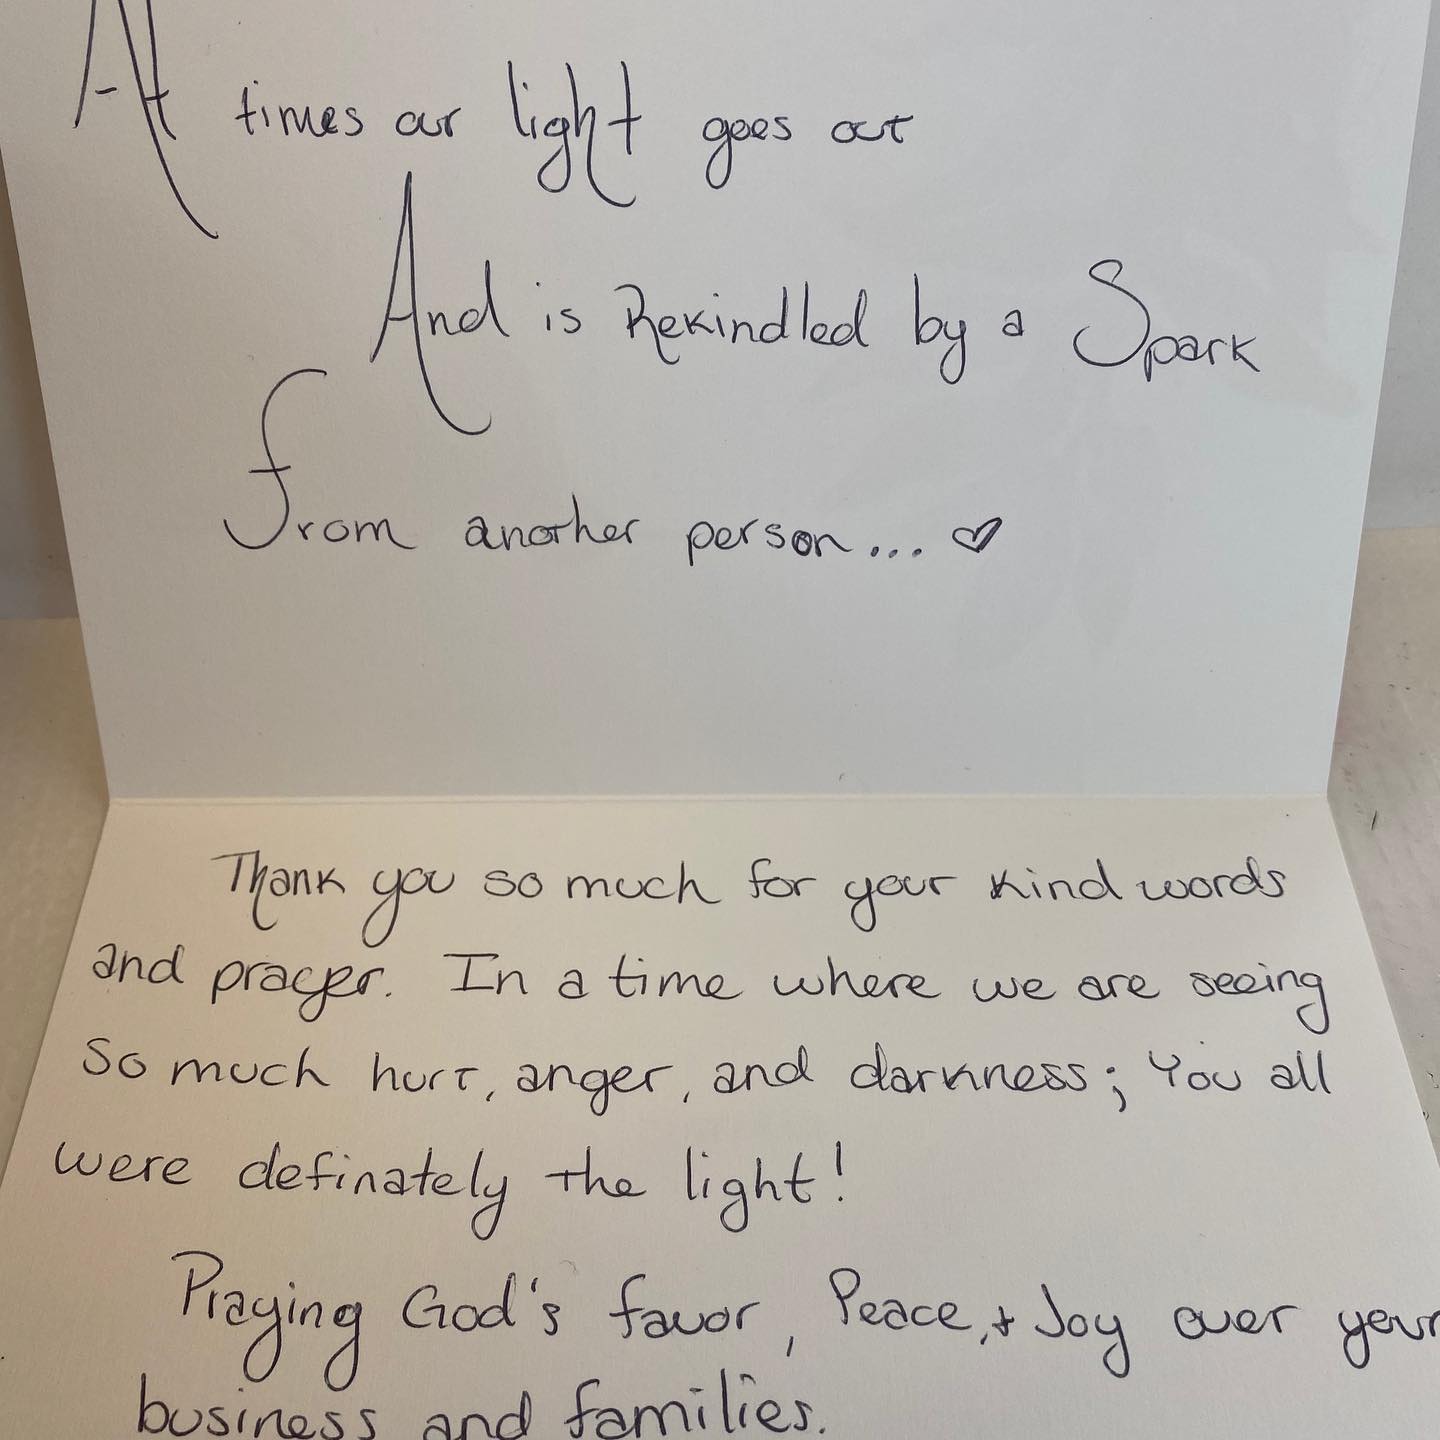 At times our light goes out
And is Rekindled by a Spark
from another person... ♡
Thank you so much for your kind words
and prayer. In a time where we are seeing
so much hurt, anger, and darkness; You all
were definately the light!
Praying God's favor, Peace, + Joy over your
business and families.